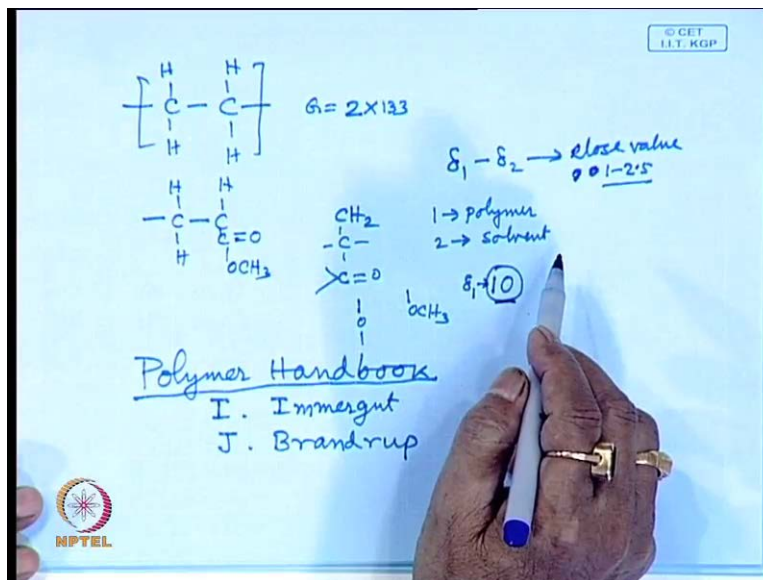 © CET
I.I.T. KGP
H H
C - C G = 2 X 133
H H
δ1 - δ2 → close value
1-2.5
H H
- C - C
C = O
H OCH3
CH2
- C -
C = O
OCH3
O
1 → polymer
2 → solvent
δ1 → 10
Polymer Handbook
I. Immergut
J. Brandrup
NPTEL